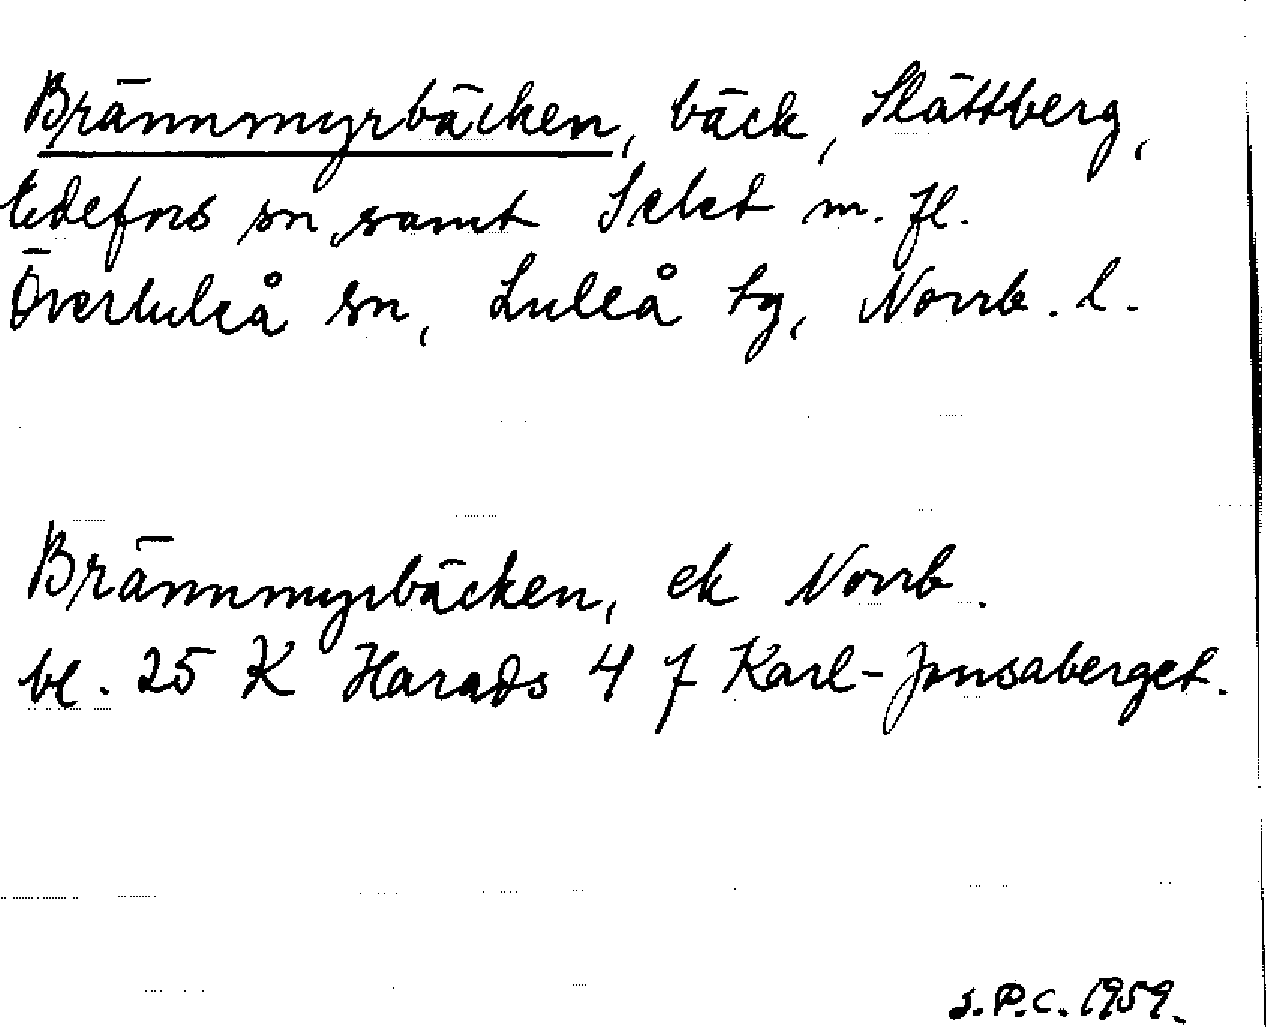 Brännmyrbäcken, bäck, Slättberg,
Edefors sn samt Selet m. fl.
Överluleå sn, Luleå tg, Norrb. l.
Brännmyrbäcken, ek Norrb.
bl. 25 K Harads 4 f Karl-Jonsaberget.
J.P.C. 1959.